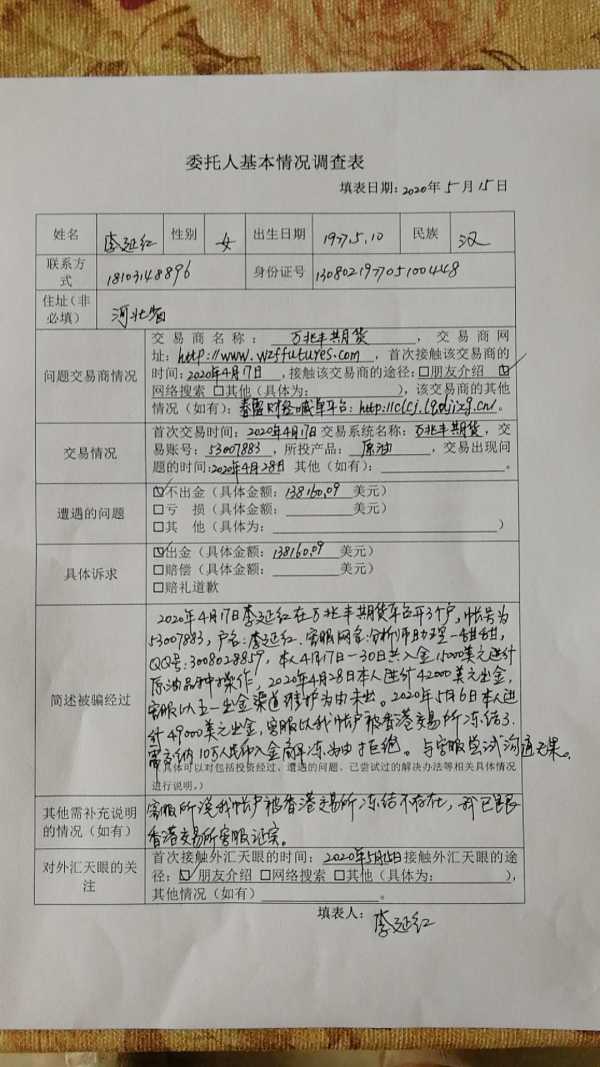 委托人基本情况调查表
填表日期：2020年5月15日
姓名 李延红 性别 女 出生日期 1977.5.10 民族 汉
联系方式 18103148896 身份证号 130802197705100448
住址（非必填） 河北省
问题交易商情况
交易商名称： 万兆丰期货 ，交易商网
址：http://www.wzffutures.com ，首次接触该交易商的
时间：2020年4月17日，接触该交易商的途径：□朋友介绍 ☑
网络搜索 □其他（具体为： ），该交易商的其他
情况（如有）：
交易情况
首次交易时间：2020年4月17日 交易系统名称：万兆丰期货，交
易账号：53007883 ，所投产品： 原油 ，交易出现问
题的时间：2020年4月28日 其他（如有）： 。
遭遇的问题
☑不出金（具体金额：138160.09 美元）
□亏 损（具体金额： 美元）
□其 他（具体为： ）
具体诉求
☑出金（具体金额：138160.09 美元）
□赔偿（具体金额： 美元）
□赔礼道歉
简述被骗经过
2020年4月17日李延红在万兆丰期货平台开3个户，帐号为
53007883，户名：李延红．客服网名：分析师助理－甜甜，
QQ号：3008028859，本人4月17日－30日共入金15000美元进行
原油品种操作，2020年4月28日本人进行42000美元出金，
客服以五一出金渠道维护为由未出。2020年5月6日本人进
行49000美元出金，客服以我帐户被香港交易所冻结了．
需交纳10万人民币入金解冻为由拒绝。与客服尝试沟通无果。
（具体可以对包括投资经过、遭遇的问题、已尝试过的解决办法等相关具体情况
进行说明。）
其他需补充说明的情况（如有）
客服所说我帐户被香港交易所冻结不存在，我已跟
香港交易所客服证实。
对外汇天眼的关注
首次接触外汇天眼的时间： 2020年5月15日接触外汇天眼的途
径：☑朋友介绍 □网络搜索 □其他（具体为： ），
其他情况（如有） 。
填表人： 李延红